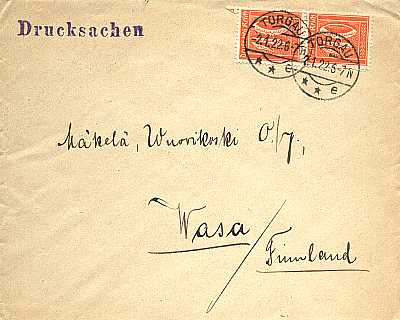 Drucksachen
TORGAU
-2.1.22.6-7N
* * e
TORGAU
2.1.22.6-7N
* * e
Mäkelä, Wuorikoski O./Y.,
Wasa
/ Finnland